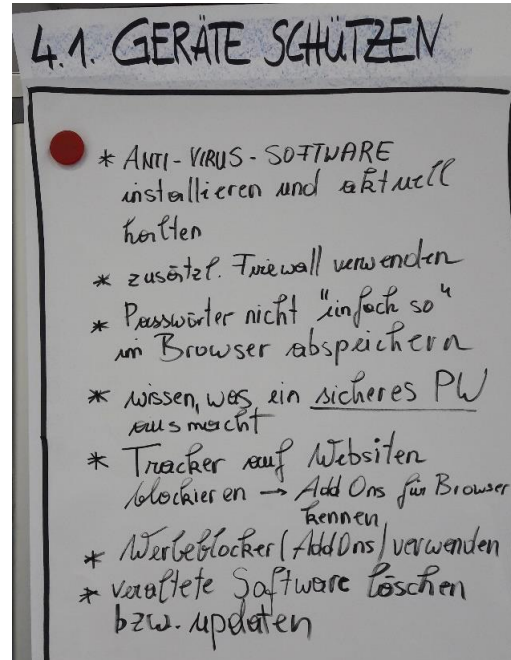 4.1. GERÄTE SCHÜTZEN
* ANTI-VIRUS-SOFTWARE
installieren und aktuell
halten
* zusätzl. Firewall verwenden
* Passwörter nicht "einfach so"
im Browser abspeichern
* wissen, was ein sicheres PW
ausmacht
* Tracker auf Websiten
blockieren → Add Ons für Browser
kennen
* Werbeblocker (AddOns) verwenden
* veraltete Software löschen
bzw. updaten